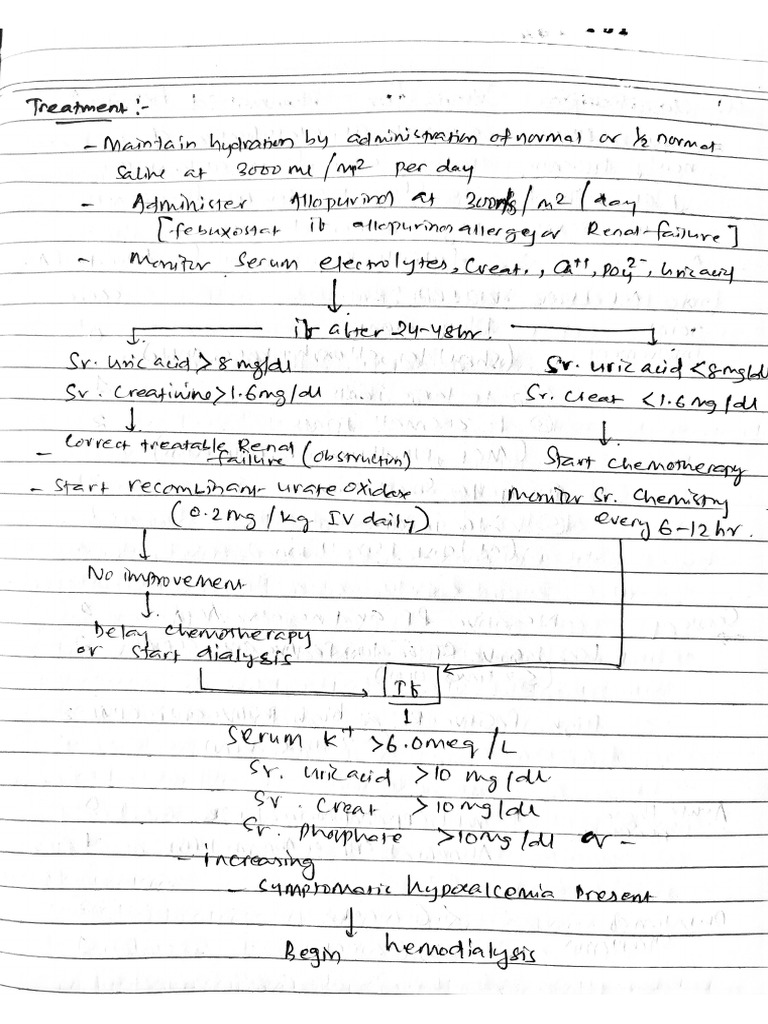 Treatment :-
- Maintain hydration by administration of normal or ½ normal
Saline at 3000 ml / m2 per day
- Administer Allopurinol at 300mg / m2 / day
[febuxostat if allopurinol allergy or Renal-failure]
- Monitor serum electrolytes, Creat., Ca++, PO4 2-, Uric acid
if after 24-48hr.
Sr. Uric acid > 8 mg/dl
Sr. Creatinine > 1.6 mg/dl
Sr. Uric acid < 8 mg/dl
Sr. Creat < 1.6 mg/dl
- Correct treatable Renal
failure (obstruction)
- Start recombinant urate oxidase
(0.2 mg / kg IV daily)
Start chemotherapy
Monitor Sr. Chemistry
every 6-12 hr.
No improvement
Delay chemotherapy
or start dialysis
If
Serum K+ > 6.0 meq / L
Sr. Uric acid > 10 mg / dl
Sr. Creat > 10 mg / dl
Sr. Phosphate > 10 mg / dl or -
- increasing
- Symptomatic hypocalcemia Present
Begin hemodialysis